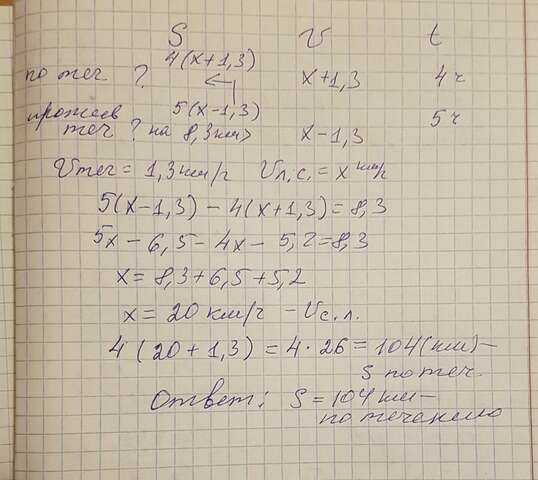 S v t
4(x+1,3)
по теч. ? x+1,3 4 ч
5(x-1,3) 5 ч
против
теч ? на 8,3 км> x-1,3
Vтеч = 1,3 км/ч Vл.с. = x км/ч
5(x-1,3) - 4(x+1,3) = 8,3
5x - 6,5 - 4x - 5,2 = 8,3
x = 8,3 + 6,5 + 5,2
x = 20 км/ч - Vс.л.
4(20 + 1,3) = 4 · 26 = 104(км) -
S по теч.
Ответ: S = 104 км -
по течению